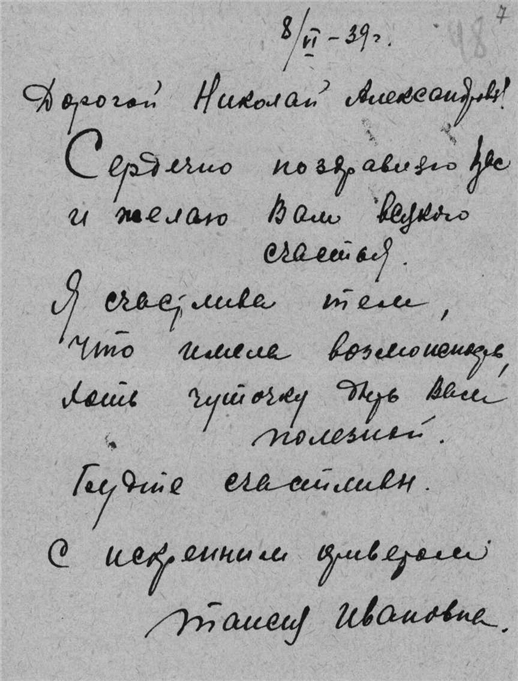 7
48
8/VI-39г.
Дорогой Николай Александрович!
Сердечно поздравляю Вас
и желаю Вам всякого
счастья.
Я счастлива тем,
что имела возможность,
хоть чуточку быть Вам
полезной.
Будте счастливы.
С искренним приветом
Таисия Ивановна.